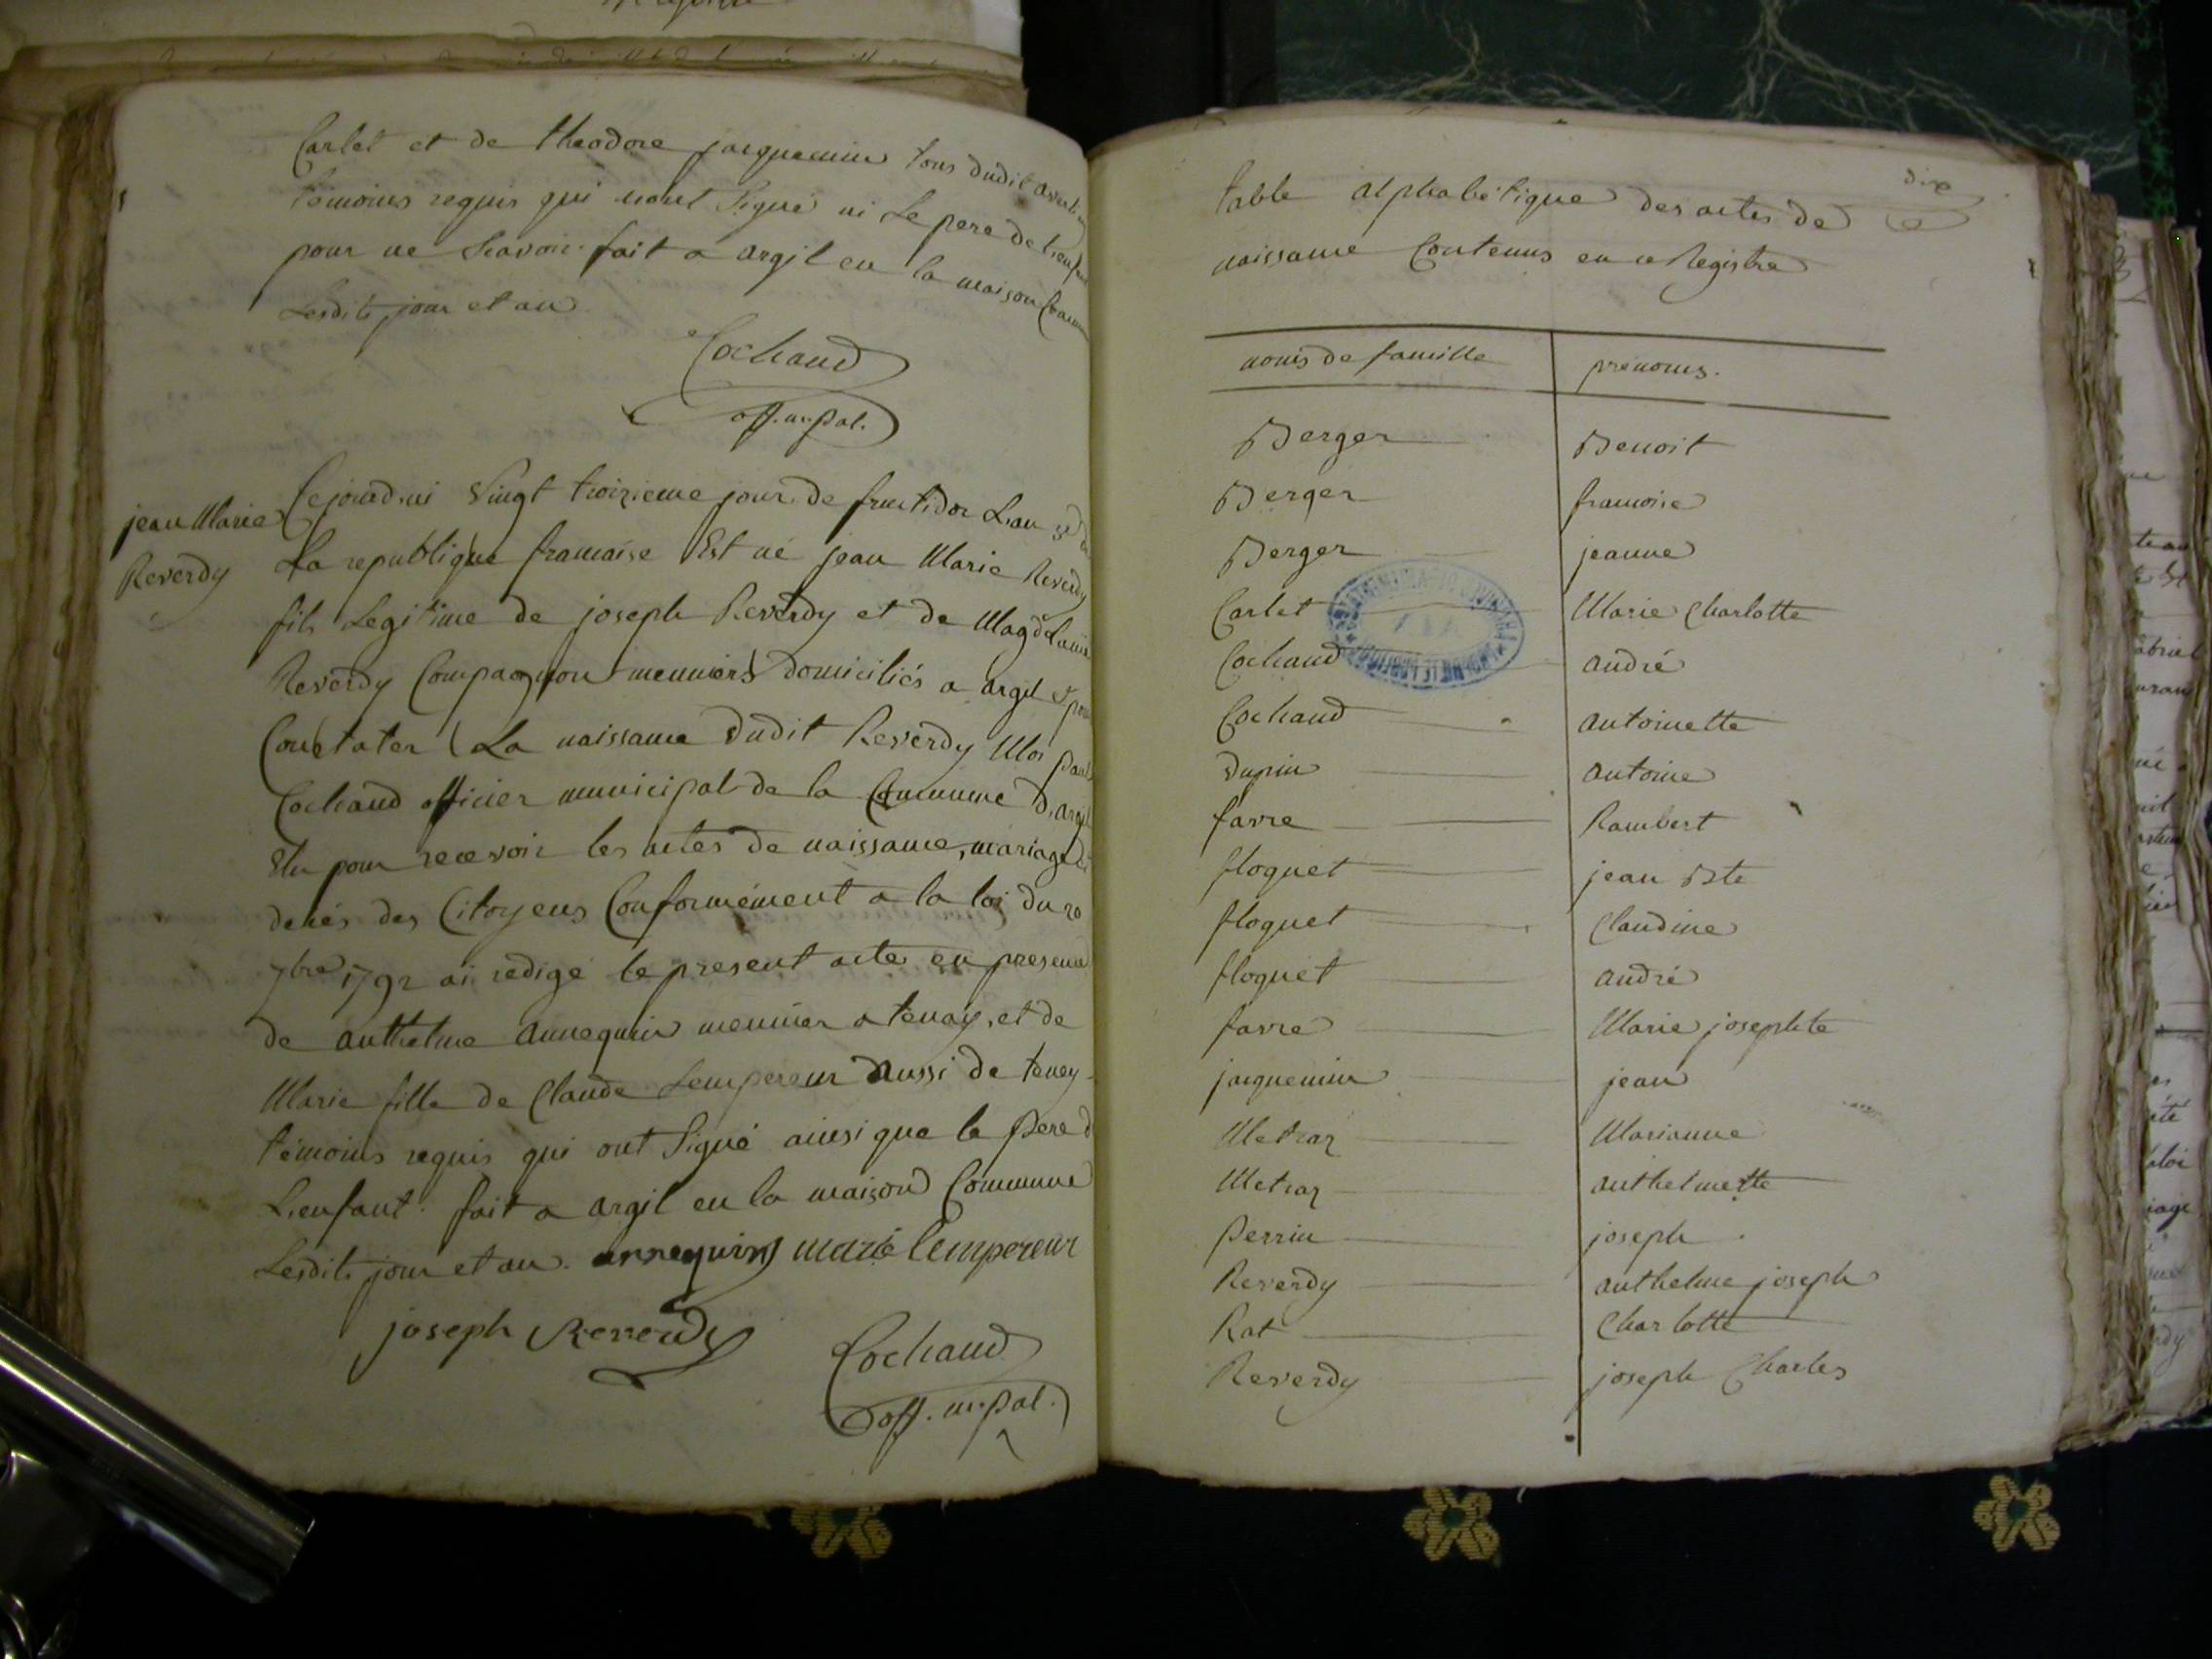 Carlet et de theodore jacquemin tous dudit
témoins requis qui nont signé ni Le pere de l'enfan
pour ne Scavoir. fait a argil en la maison Commu
Lesdits jour et an
Cochand
off. m.pal.
jean Marie
Reverdy
Cejourd'hui vingt troizieme jour de fructidor L'an 3e de
La republique francaise Est né jean Marie Reverdy
fils Legitime de joseph Reverdy et de Magdelaine
Reverdy Compagnon meuniers domiciliés a argil & pour
Constater La naissance dudit Reverdy Moi paul
Cochand officier municipal de la Commune d'argil
Elu pour recevoir les actes de naissance, mariage
décés des Citoyens Conformément a la loi du 20
7bre 1792 ai rédigé le present acte en presence
de anthelme annequin meunier a tenay, et de
Marie fille de Claude Lempereur aussi de teney
témoins requis qui ont signé ainsi que le pere d
L'enfant. fait a argil en la maison Commune
Lesdits jour et an. annequin marie lempereur
joseph Reverdy
Cochand
off. m.pal.
dix
table alphabétique des actes de
naissance Contenus en ce Registre
noms de famille prénoms.
Berger Benoit
Berger francoise
Berger jeanne
Carlet Marie Charlotte
Cochand andré
Cochand antoinette
Dupin antoine
favre Rambert
floquet jean Bte
floquet Claudine
floquet andré
favre Marie josephte
jacquemin jean
Metraz Marianne
Metraz anthelmette
Perrin joseph
Reverdy anthelme joseph
Rat Charlotte
Reverdy joseph Charles